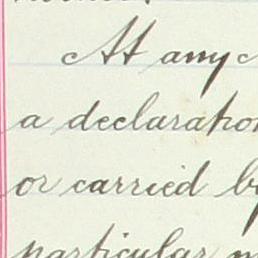 At any
a declaration
or carried by
particular